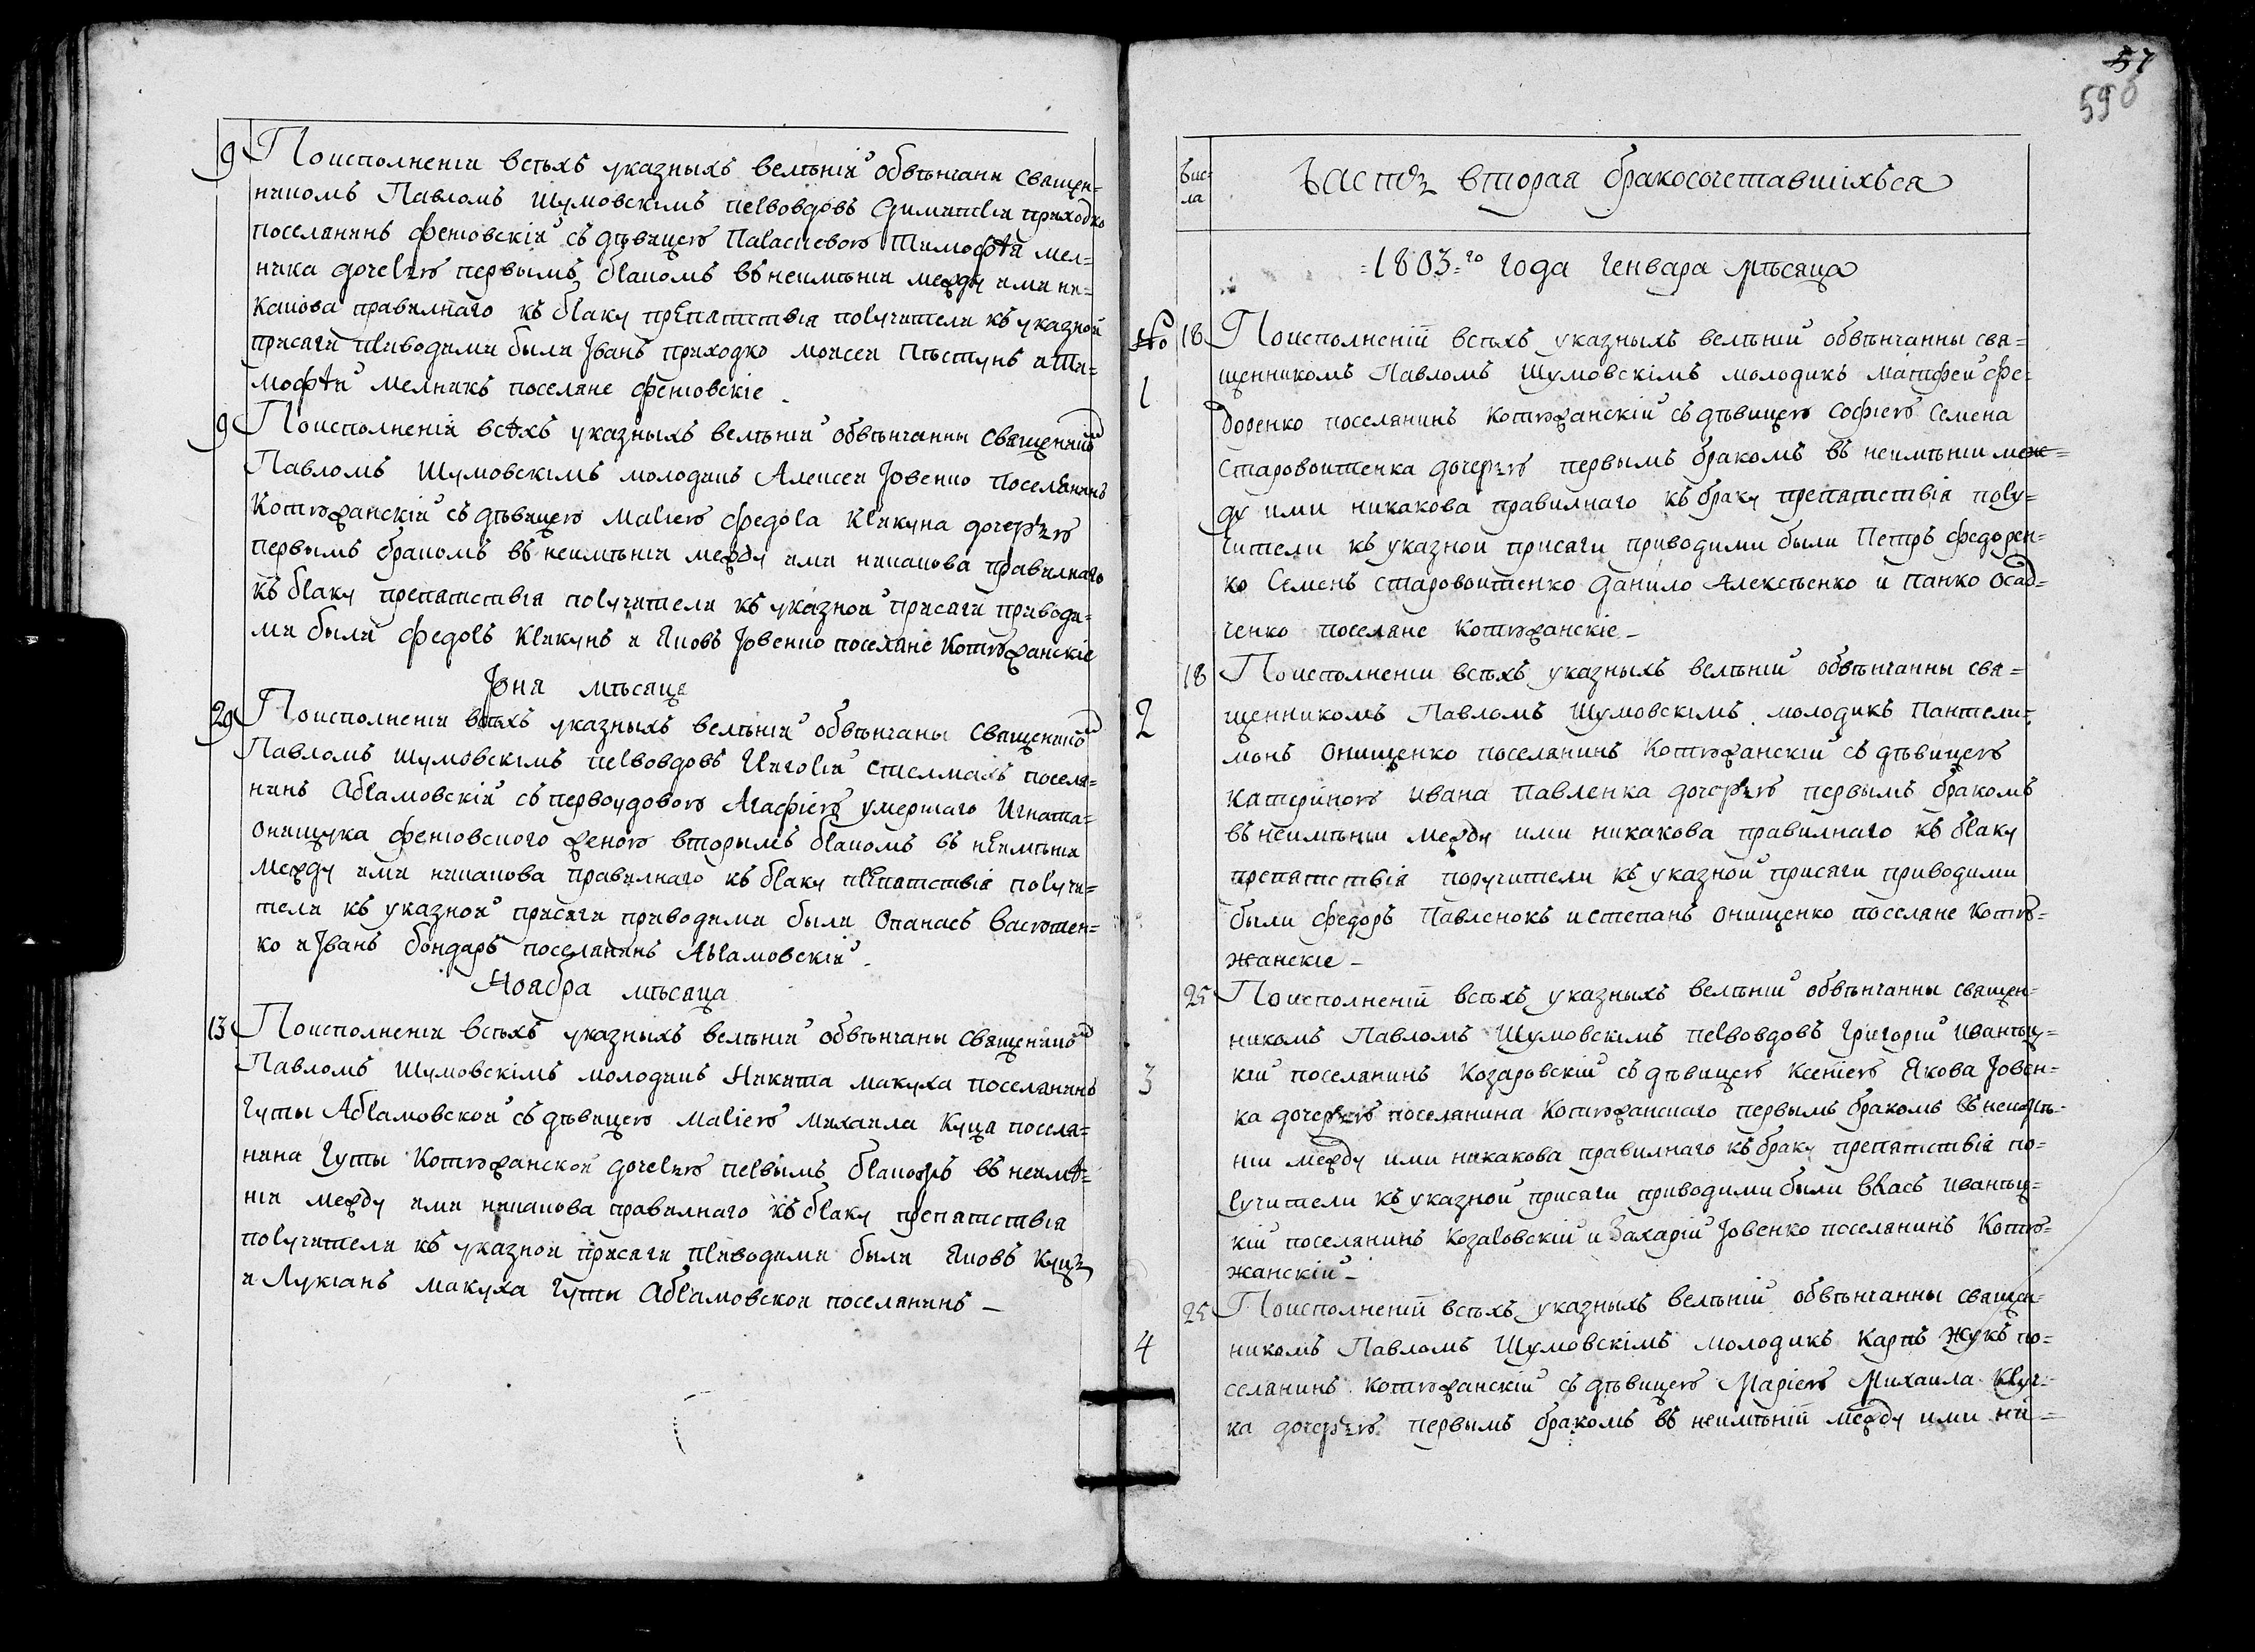 9 Поисполнении всѣхъ указныхъ велѣній обвѣнчани священ=
никомъ Павломъ Шумовскімъ первовдовъ Димитрій приходко
поселянинъ феневскій съ дѣвицею Параскевою Тимофѣя мел=
ника дочерью первымъ бракомъ въ неимѣніи между ими ни=
какова правилнаго къ браку препятствія поручители къ указной
присяги приводими были Іванъ приходко моисей Пѣстунъ и Ти=
мофѣй мелникъ поселяне феневскіе
9 Поисполненіи всѣхъ указныхъ велѣній обвѣнчанны священикомъ
Павломъ Шумовскімъ молодикъ Алексей Іовенко поселянинъ
Котюжанскій съ дѣвицею Маріею Федора Крикуна дочерью
первымъ бракомъ въ неимѣніи между ими никакова правилнаго
къ браку препятствія поручители къ указной присяги приводи=
ми были Федоръ Крикунъ и Яковъ Іовенко поселяне Котюжанскіе
Іюня мѣсяца
29 Поисполнении всѣхъ указныхъ велѣній обвѣнчаны священикомъ
Павломъ Шумовскімъ первовдовъ Григорій стелмахъ поселя=
нинъ Абрамовскій съ первоудовою Агафіею умершаго Игната
Онищука феневского женою вторымъ бракомъ въ неимѣніи
между ими никакова правилнаго къ браку препятствія поручи=
тели къ указной присяги приводими были Опанасъ Васютен=
ко и Іванъ бондаръ поселянинъ Абрамовскій
Ноября мѣсяца
13 Поисполнении всѣхъ указныхъ велѣній обвѣнчаны священикомъ
Павломъ Шумовскімъ молодикъ Никита макуха поселянинъ
Гуты Абрамовской съ дѣвицею Маріею Михаила Куца поселя=
нина Гуты Котюжанской дочерью первымъ бракомъ въ неимѣ=
нии между ими никакова правилнаго къ браку препятствія
поручители къ указной присяги приводими были Яковъ Куць
и Лукіанъ макуха Гути Абрамовской поселянинъ
57
590
Чис=
ла
Часть вторая бракосочетавшіхъся
=1803=го Года Генваря мѣсяца
№ 18 Поисполненій всѣхъ указныхъ велѣній обвѣнчанны свя=
1 щенникомъ Павломъ Шумовскімъ молодикъ Матфей Фе=
доренко поселянинъ Котюжанскій съ дѣвицею Софіею Семена
Старовоитенка дочерью первымъ бракомъ въ неимѣніи меж=
ду ими никакова правилнаго къ браку препятствія пору=
чители къ указной присяги приводими были Петръ Федорен=
ко Семенъ старовоитенко Данило Алексѣенко и Панко Осад=
ченко поселяне Котюжанскіе
18 Поисполнении всѣхъ указныхъ велѣній обвѣнчанны свя=
2 щенникомъ Павломъ Шумовскімъ молодикъ Пантели=
монъ Онищенко поселянинъ Котюжанскій съ дѣвицею
Катериною Ивана Павленка дочерью первымъ бракомъ
въ неимѣніи между ими никакова правилнаго къ браку
препятствія поручители къ указной присяги приводими
были Федоръ Павленокъ и степанъ Онищенко поселяне Котю=
жанскіе
25 Поисполненій всѣхъ указныхъ велѣній обвѣнчанны священ=
никомъ Павломъ Шумовскімъ первовдовъ Григорій Иваниц=
3 кій поселянинъ Козаровскій съ дѣвицею Ксеніею Якова Іовен=
ка дочерью поселянина Котюжанскаго первымъ бракомъ въ неимѣ=
ніи между ими никакова правилнаго къ браку препятствія по=
ручители къ указной присяги приводими были Власъ Иваниц=
кій поселянинъ Козаровскій и Захарій Іовенко поселянинъ Котю=
жанскій
25 Поисполненій всѣхъ указныхъ велѣній обвѣнчанны священ=
4 никомъ Павломъ Шумовскімъ молодикъ Карпъ Жукъ по=
селянинъ Котюжанскій съ дѣвицею Маріею Михаила
ка дочерью первымъ бракомъ въ неимѣній между ими ни=